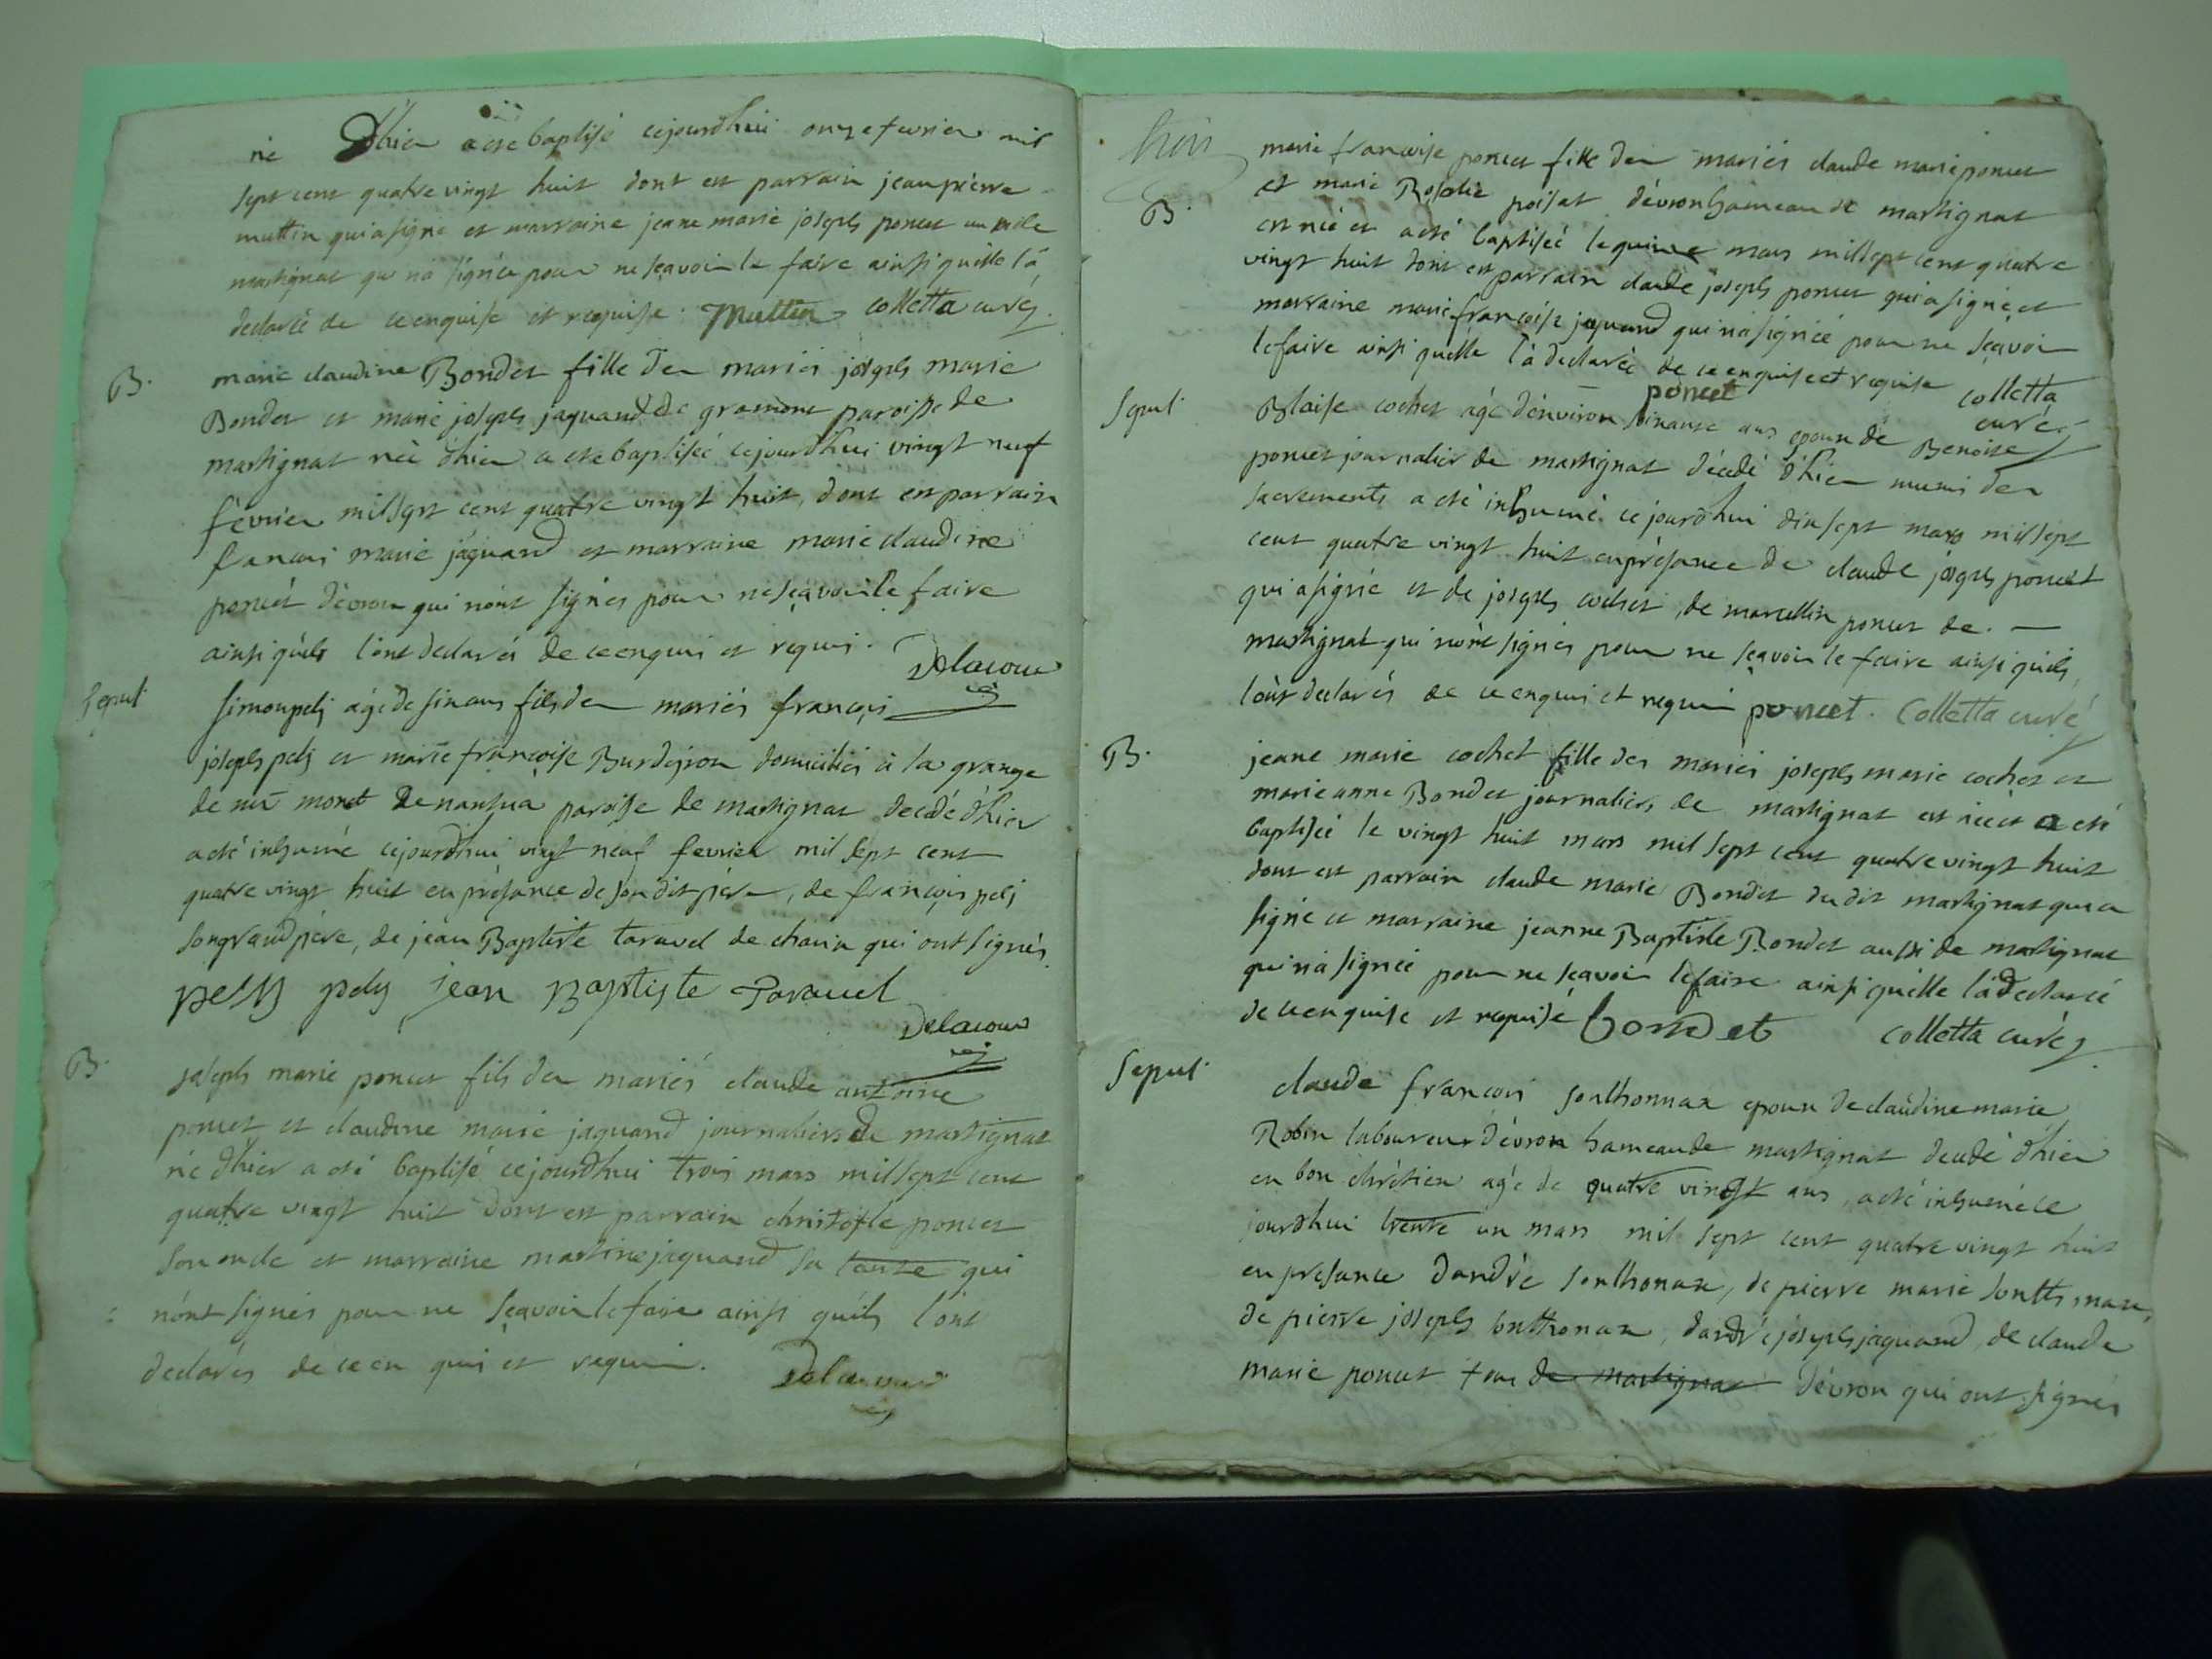 né d'hier a été baptisé cejourdhui onze fevrier mil
sept cent quatre vingt huit dont est parrain jean pierre
muttin qui a signé et marraine jeane marie joseph poncet de
martignat qui n'a signée pour ne sçavoir le faire ainsi qu'elle l'a
declaré de ce enquise et requise. Muttin colletta curé
B. marie claudine Bondet fille des mariés joseph marie
Bondet et marie joseph jaquand de gramont paroisse de
martignat née d'hier a été baptisée cejourdhui vingt neuf
fevrier mil sept cent quatre vingt huit, dont est parrain
francois marie jaquand et marraine marie claudine
poncet d'évron qui n'ont signés pour ne sçavoir le faire
ainsi qu'ils l'ont declarés de ce enquis et requis. Delacour
Sepul. simon pely agé de six ans fils des mariés françois
joseph pely et marie françoise Burdeyron domiciliés à la grange
de mr monet de nantua paroisse de martignat decedé d'hier
a été inhumé cejourdhui vingt neuf fevrier mil sept cent
quatre vingt huit en présance de son dit père, de françois pely
son grand père, de jean Baptiste taravel de charix qui ont signés
pelly pely jean Baptiste Taravel
Delacour
B. joseph marie poncet fils des mariés claude antoine
poncet et claudine marie jaquand journaliers de martignat
né d'hier a été baptisé cejourdhui trois mars mil sept cent
quatre vingt huit dont est parrain christofle poncet
son oncle et marraine martine jaquand sa tante qui
n'ont signés pour ne sçavoir le faire ainsi qu'ils l'ont
declarés de ce enquis et requis. Delacour
trois
marie françoise poncet fille des mariés claude marie poncet
B. et marie Rosalie poisat d'évron hameau de martignat
est née et a été baptisée le quinze mars mil sept cent quatre
vingt huit dont est parrain claude joseph poncet qui a signé et
marraine marie françoise jaquand qui n'a signée pour ne sçavoir
le faire ainsi qu'elle l'a declarée de ce enquise et requise
poncet colletta
curé
Sepul. Blaise cochet agé d'environ soixante ans epoux de Benoite
poncet journalier de martignat décédé d'hier muni des
sacrements a été inhumé cejourdhui dix sept mars mil sept
cent quatre vingt huit en présance de claude joseph poncet
qui a signé et de joseph cochet, de marcellin poncet de
martignat qui n'ont signés pour ne sçavoir le faire ainsi qu'ils
l'ont declarés de ce enquis et requis poncet. Colletta curé
B. jeane marie cochet fille des mariés joseph marie cochet et
marie anne Bondet journaliers de martignat est née et a été
baptisée le vingt huit mars mil sept cent quatre vingt huit
dont est parrain claude marie Bondet du dit martignat qui a
signé et marraine jeanne Baptiste Bondet aussi de martignat
qui n'a signée pour ne sçavoir le faire ainsi qu'elle l'a declarée
de ce enquise et requise bondet colletta curé
Sepul. claude françois sonthonnax epoux de claudine marie
Robin laboureur d'évron hameau de martignat decedé d'hier
en bon chrétien agé de quatre vingt ans, a été inhumé ce
jourdhui trente un mars mil sept cent quatre vingt huit
en presance d'andré sonthonax, de pierre marie sonthonax,
de pierre joseph sonthonax, d'andré joseph jaquand, de claude
marie poncet tous de martignat d'évron qui ont signés